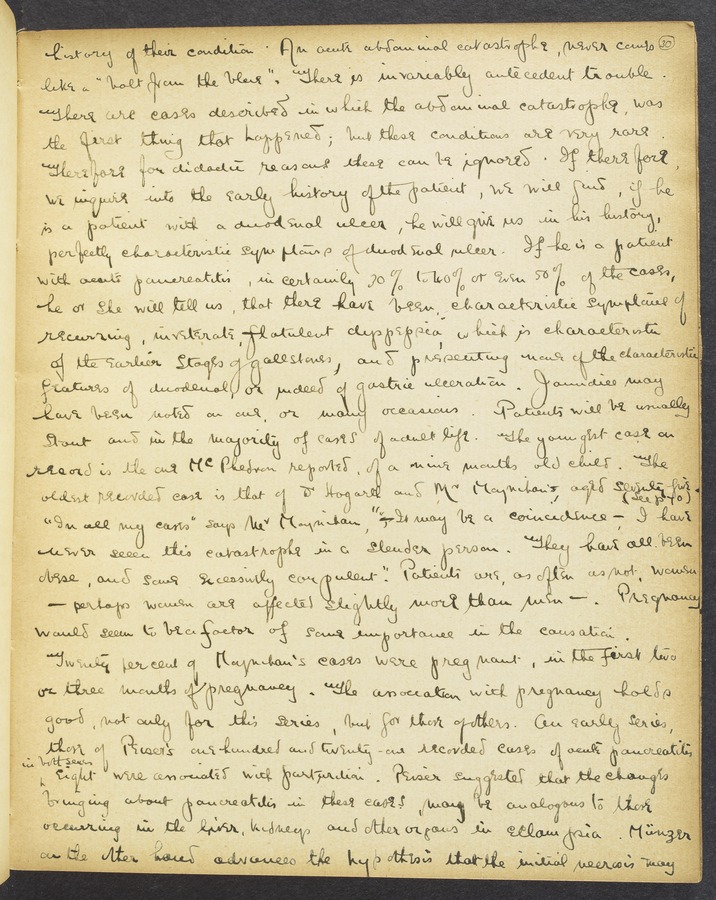 history of their condition. An acute abdominal catastrophe, never comes (30)
like a "bolt from the blue". There is invariably antecedent trouble.
There are cases described in which the abdominal catastrophe, was
the first thing that happened; but these conditions are very rare.
Therefore for didactic reasons these can be ignored. If therefore,
we inquire into the early history of the patient, we will find, if he
is a patient with a duodenal ulcer, he will give us in his history,
perfectly characteristic symptoms of duodenal ulcer. If he is a patient
with acute pancreatitis, in certainly 30% to 40% or even 50% of the cases,
he or she will tell us, that there have been, characteristic symptoms of
recurring, inveterate, flatulent dyspepsia, which is characteristic
of the earlier stages of gallstones, and presenting none of the characteristic
features of duodenal, or indeed of gastric ulceration. Jaundice may
have been noted on one, or many occasions. Patients will be usually
stout and in the majority of cases of adult life. The youngest case on
record is the one McPhedran reported, of a nine months old child. The
oldest recorded case is that of Dr Hogarth and Mr Moynihan's, aged seventy-five.
(see p 40)
"In all my cases" says Mr Moynihan, "– It may be a coincidence –, I have
never seen this catastrophe in a slender person. They have all been
obese, and some excessively corpulent". Patients are, as often as not, women
– perhaps women are affected slightly more than men –. Pregnancy
would seem to be a factor of some importance in the causation.
Twenty per cent of Moynihan's cases were pregnant, in the first two
or three months of pregnancy. The association with pregnancy holds
good, not only for this series, but for those of others. An early series,
those of Peiser's one-hundred and twenty-one recorded cases of acute pancreatitis
in both sexes
eight were associated with parturition. Peiser suggested that the changes
bringing about pancreatitis in these cases, may be analogous to those
occurring in the liver, kidneys and other organs in eclampsia. Münzer
on the other hand advances the hypothesis that the initial necrosis may